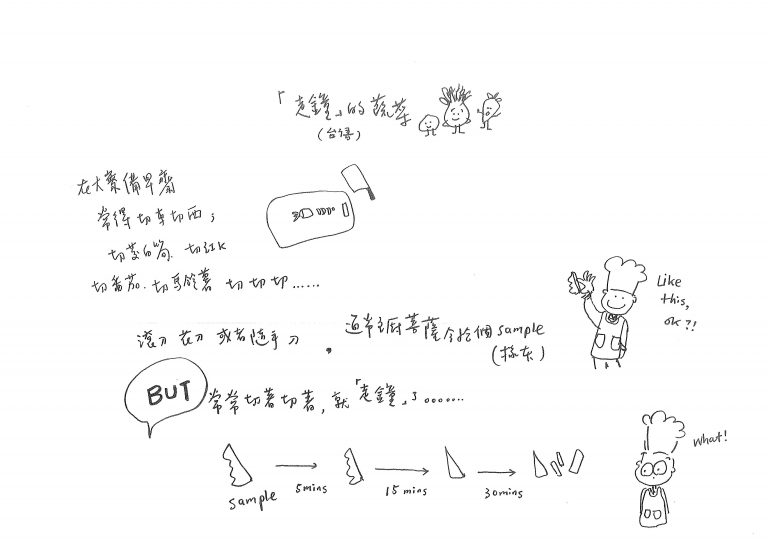 「走鐘」的蔬菜
(台語)
在大寮備早齋
常得切東切西；
切茭白筍、切紅K
切番茄、切馬鈴薯 切切切……
滾刀 花刀 或者隨手刀，通常主廚菩薩會給個sample
(樣本)
Like
this,
ok?!
BUT
常常切著切著，就「走鐘」了……
sample
5mins
15mins
30mins
What!